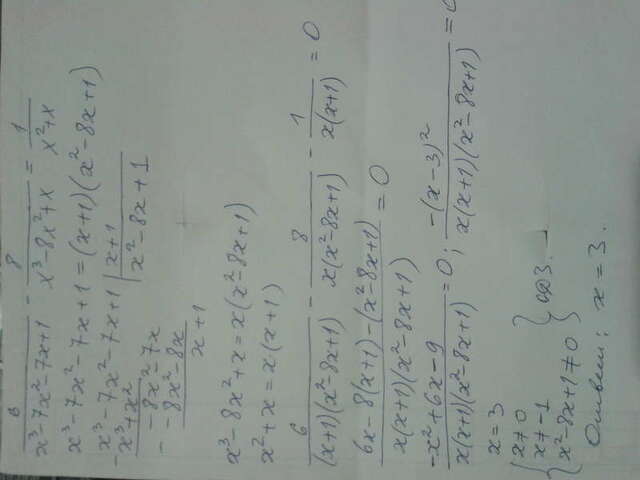 6/(x³-7x²-7x+1) - 8/(x³-8x²+x) = 1/(x²+x)
x³-7x²-7x+1=(x+1)(x²-8x+1)
-x³-7x²-7x+1 | x+1
x³+x² | x²-8x+1
- -8x²-7x
-8x²-8x
x+1
x³-8x²+x=x(x²-8x+1)
x²+x=x(x+1)
6/((x+1)(x²-8x+1)) - 8/(x(x²-8x+1)) - 1/(x(x+1)) = 0
(6x-8(x+1)-(x²-8x+1))/(x(x+1)(x²-8x+1)) = 0
(-x²+6x-9)/(x(x+1)(x²-8x+1)) = 0; (-(x-3)²)/(x(x+1)(x²-8x+1)) = 0
x=3
{ x≠0
x≠-1
x²-8x+1≠0 } ОДЗ.
Ответ: x=3.